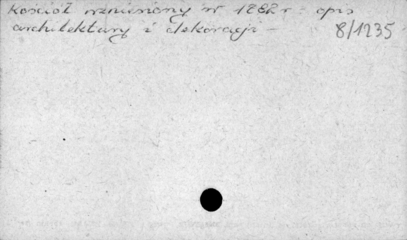 Kościół wzniesiony w 1882 r. opis
architektury i dekoracji -
8/1235